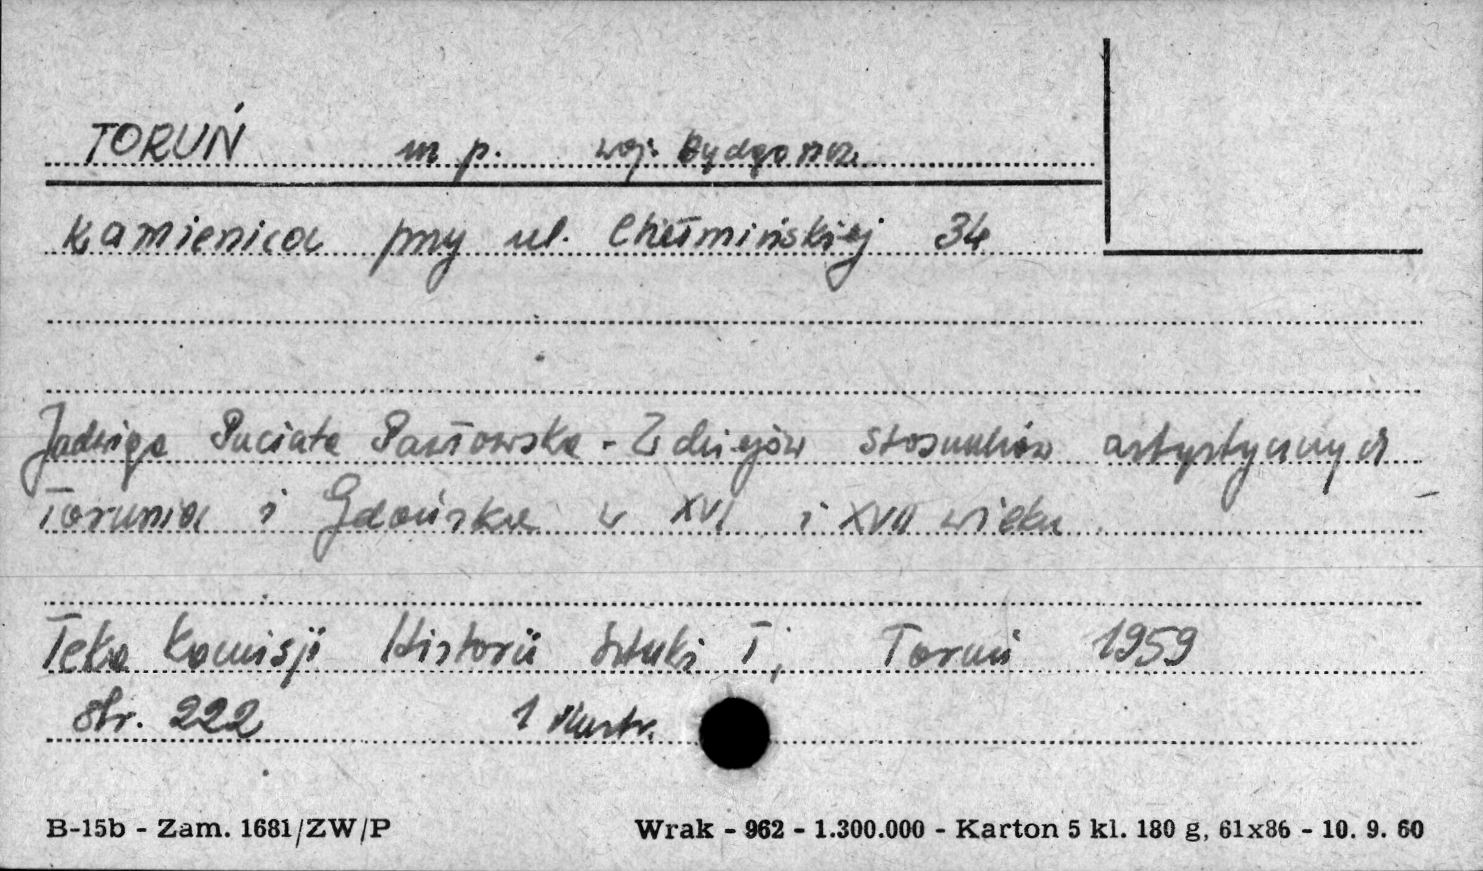 TORUŃ m p. woj. Bydgoszcz
Kamienica przy ul. Chełmińskiej 34
Jadwiga Puciata Pawłowska - Z dziejów stosunków artystycznych
Torunia i Gdańska w XVI i XVII wieku.
Teka Komisji Historii Sztuki I, Toruń 1959
str. 222 1 ilustr.
B-15b - Zam. 1681/ZW/P Wrak - 962 - 1.300.000 - Karton 5 kl. 180 g, 61x86 - 10. 9. 60